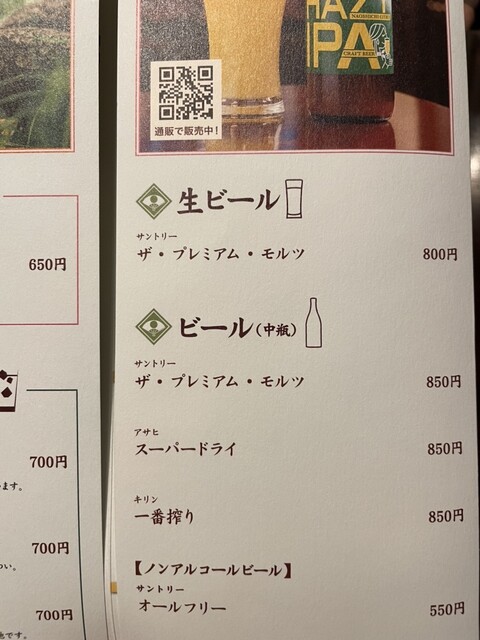 HAZY
NAOSHICHI
IPA
CRAFT BEER
通販で販売中!
生ビール
サントリー
ザ・プレミアム・モルツ 800円
ビール(中瓶)
サントリー
ザ・プレミアム・モルツ 850円
アサヒ
スーパードライ 850円
キリン
一番搾り 850円
【ノンアルコールビール】
サントリー
オールフリー 550円
650円
700円
ます。
700円
700円
です。